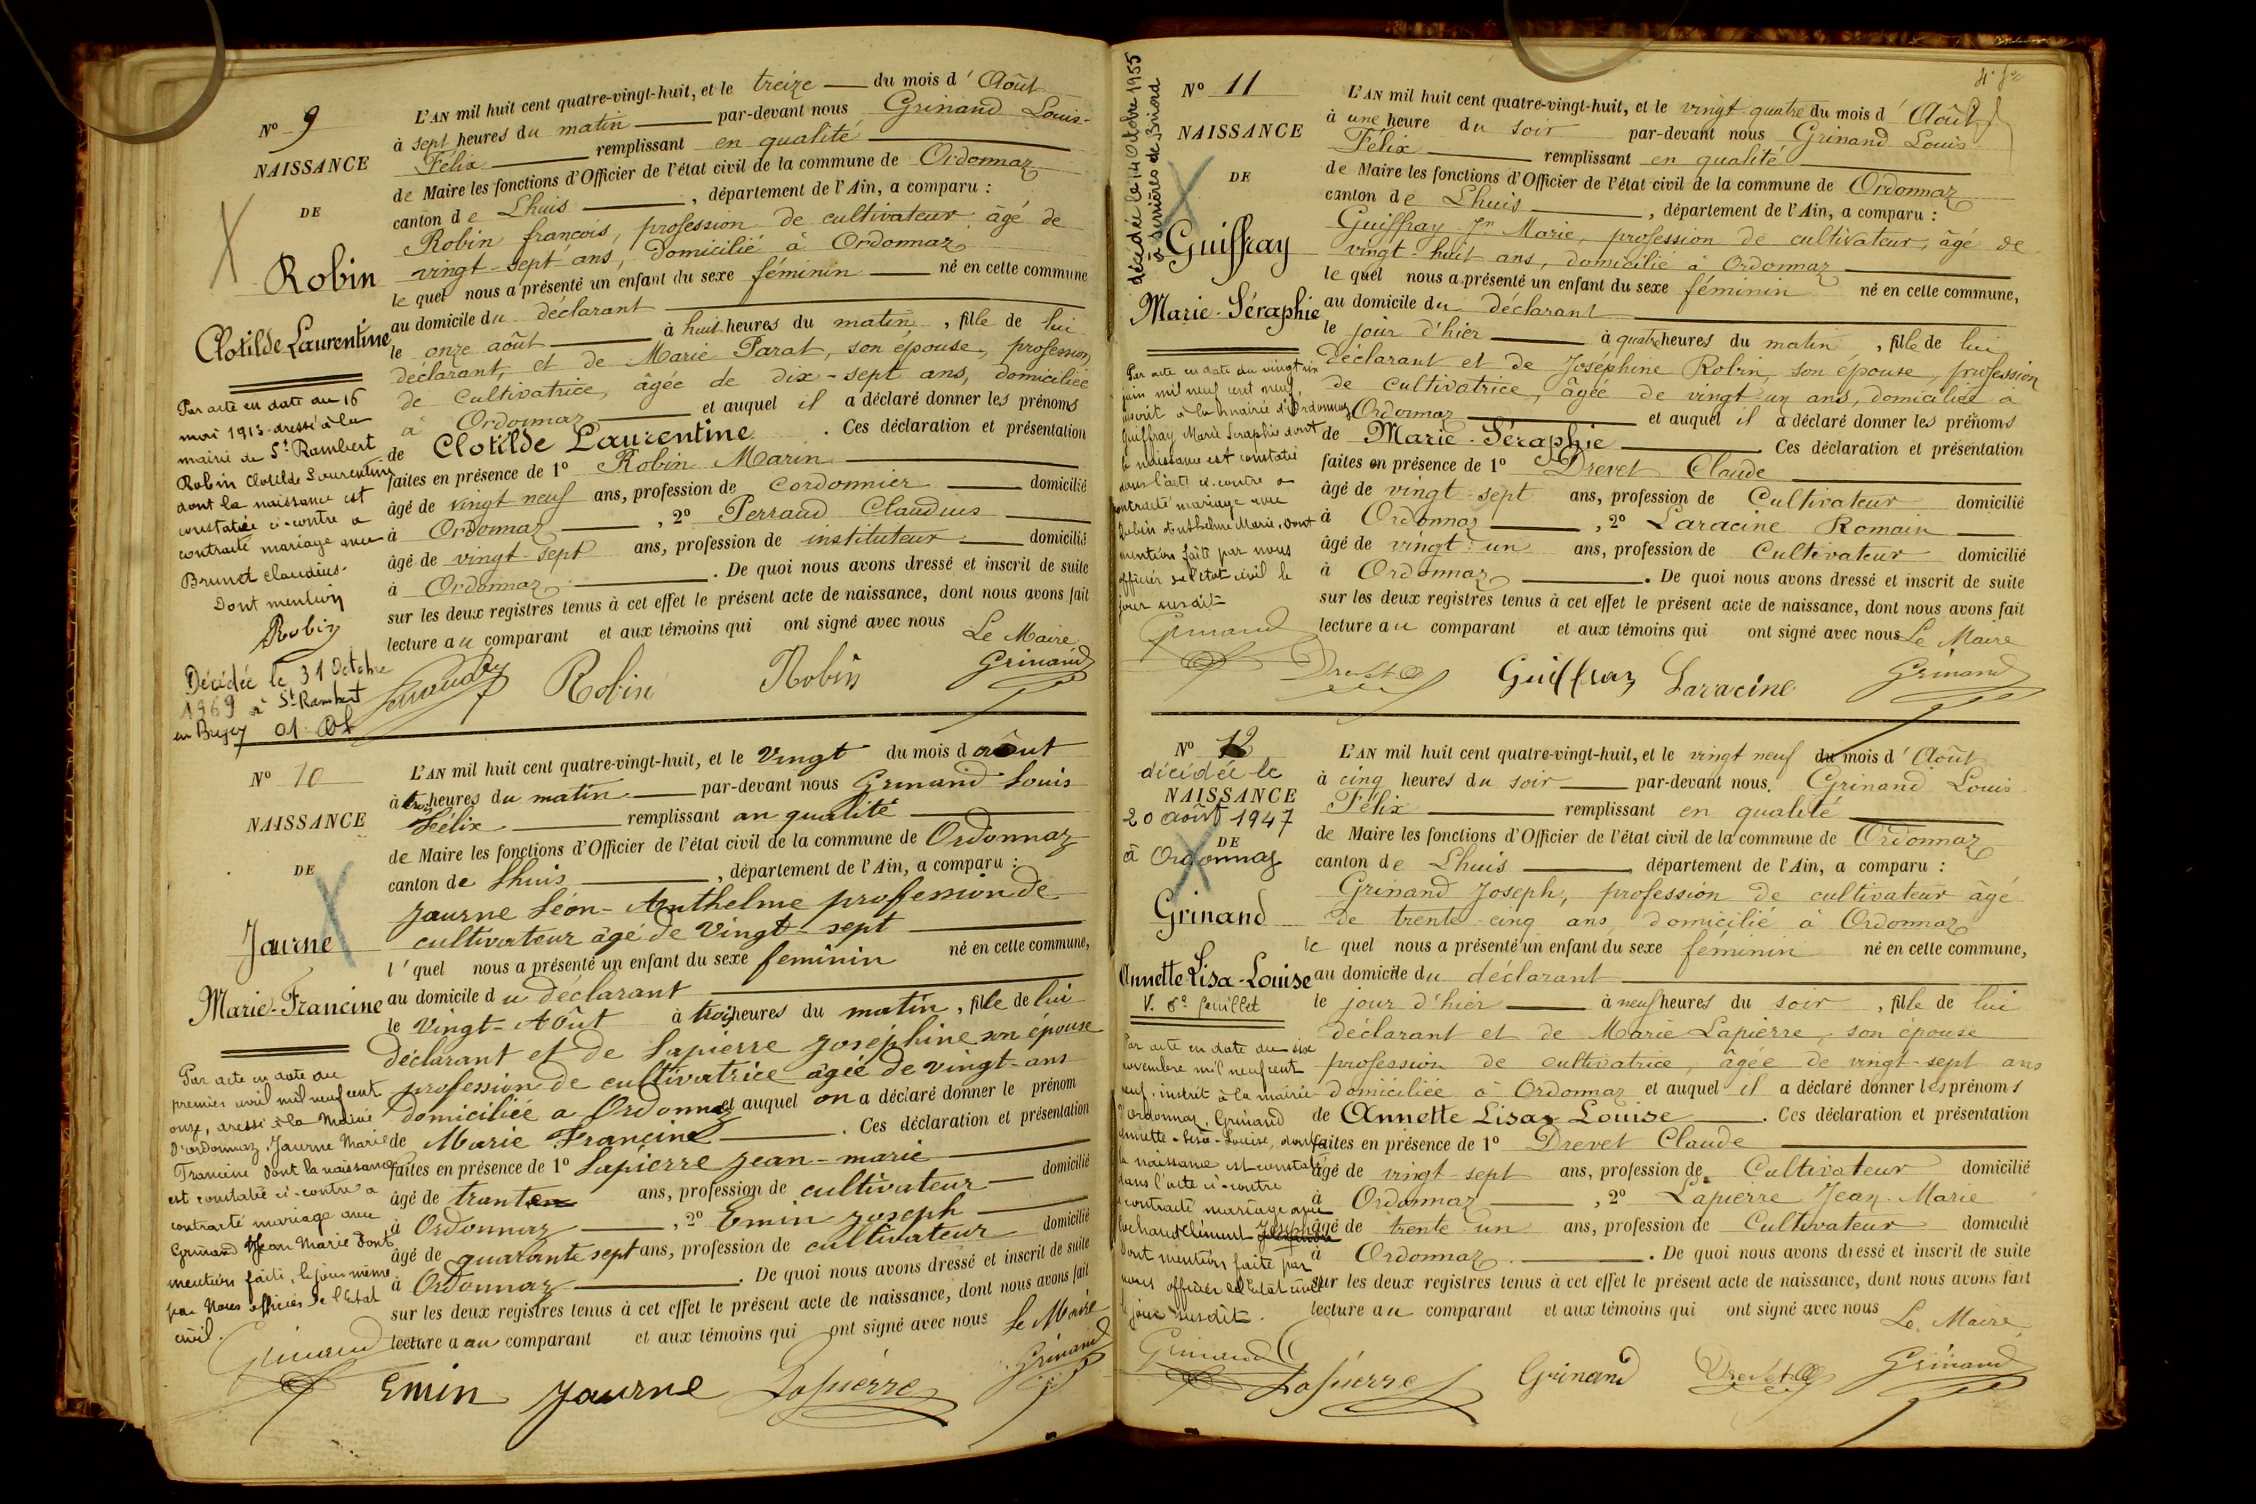 N° 9
NAISSANCE
DE
Robin
Clotilde Laurentine
Par acte en date du 16
mai 1913 dressé à la
mairie de St Rambert
Robin Clotilde Laurentine
dont la naissance est
constatée ci-contre a
contracté mariage avec
Brunet Claudius.
Dont mention
Robin
Décédée le 31 Octobre
1969 à St Rambert
en Bugey 01
L'AN mil huit cent quatre-vingt-huit, et le treize du mois d'Août
à sept heures du matin par-devant nous Grinand Louis-
Félix remplissant en qualité
de Maire les fonctions d'Officier de l'état civil de la commune de Ordonnaz
canton de Lhuis, département de l'Ain, a comparu :
Robin françois, profession de cultivateur âgé de
vingt-sept ans, domicilié à Ordonnaz
le quel nous a présenté un enfant du sexe féminin né en cette commune
au domicile du déclarant
le onze août à huit heures du matin, fille de lui
déclarant, et de Marie Parat, son épouse, profession
de cultivatrice, âgée de dix-sept ans, domiciliée
à Ordonnaz et auquel il a déclaré donner les prénoms
de Clotilde Laurentine. Ces déclaration et présentation
faites en présence de 1° Robin Marin
âgé de vingt neuf ans, profession de Cordonnier domicilié
à Ordonnaz, 2° Perraud Claudius
âgé de vingt-sept ans, profession de instituteur domicilié
à Ordonnaz. De quoi nous avons dressé et inscrit de suite
sur les deux registres tenus à cet effet le présent acte de naissance, dont nous avons fait
lecture au comparant et aux témoins qui ont signé avec nous
Le Maire
Robin Robin Grinand
N° 10
NAISSANCE
DE
Jaurne
Marie-Francine
Par acte en date du
premier avril mil neuf cent
onze, dressé à la Mairie
d'Ordonnaz, Jaurne Marie
Francine dont la naissance
est constatée ci-contre a
contracté mariage avec
Grinand Jean Marie dont
mention faite, le jour même
par Nous officier de l'Etat
civil.
Grinand
L'AN mil huit cent quatre-vingt-huit, et le Vingt du mois d août
à trois heures du matin par-devant nous Grinand Louis
Félix remplissant an qualité
de Maire les fonctions d'Officier de l'état civil de la commune de Ordonnaz
canton de Lhuis, département de l'Ain, a comparu :
Jaurne Léon-Anthelme profession de
cultivateur âgé de Vingt-sept
l'quel nous a présenté un enfant du sexe feminin né en cette commune,
au domicile du déclarant
le Vingt-Août à trois heures du matin, fille de lui
déclarant et de Lapierre Joséphine son épouse
profession de cultivatrice âgée de vingt-ans
domiciliée a Ordonnaz et auquel on a déclaré donner le prénom
de Marie Francine. Ces déclaration et présentation
faites en présence de 1° Lapierre Jean-marie
âgé de ans, profession de cultivateur domicilié
à Ordonnaz, 2° Emin Joseph
âgé de quarante sept ans, profession de cultivateur domicilié
à Ordonnaz. De quoi nous avons dressé et inscrit de suite
sur les deux registres tenus à cet effet le présent acte de naissance, dont nous avons fait
lecture a au comparant et aux témoins qui ont signé avec nous Le Maire
Emin Jaurne Lapierre Grinand
décédée le 14 Octobre 1955
à Serrières de Briord
N° 11
NAISSANCE
DE
Guiffray
Marie-Séraphie
Par acte en date du vingt six
juin mil neuf cent neuf
inscrit à la mairie d'Ordonnaz
Guiffray Marie Séraphie dont
la naissance est constatée
dans l'acte ci-contre a
contracté mariage avec
Anthelme Marie, dont
mention faite par nous
officier de l'état civil le
jour susdit
Grinand
L'AN mil huit cent quatre-vingt-huit, et le vingt quatre du mois d'Août
à une heure du soir par-devant nous Grinand Louis
Félix remplissant en qualité
de Maire les fonctions d'Officier de l'état civil de la commune de Ordonnaz
canton de Lhuis, département de l'Ain, a comparu :
Guiffray Jn Marie, profession de cultivateur, âgé de
vingt-huit ans, domicilié à Ordonnaz
le quel nous a présenté un enfant du sexe féminin né en cette commune,
au domicile du déclarant
le jour d'hier à quatre heures du matin, fille de lui
déclarant et de Joséphine Robin, son épouse, profession
de cultivatrice, âgée de vingt un ans, domiciliée a
Ordonnaz et auquel il a déclaré donner les prénoms
de Marie-Séraphie Ces déclaration et présentation
faites en présence de 1° Drevet Claude
âgé de vingt-sept ans, profession de Cultivateur domicilié
à Ordonnaz, 2° Laracine Romain
âgé de vingt-un ans, profession de Cultivateur domicilié
à Ordonnaz. De quoi nous avons dressé et inscrit de suite
sur les deux registres tenus à cet effet le présent acte de naissance, dont nous avons fait
lecture au comparant et aux témoins qui ont signé avec nous Le Maire
Guiffray Laracine Grinand
N° 12
décédée le
NAISSANCE
20 août 1947
DE
à Ordonnaz
Grinand
Annette Lisa-Louise
V. 8e feuillet
Par acte en date du six
novembre mil neuf cent
neuf, inscrit à la mairie
d'Ordonnaz, Grinand
Annette-Lisa-Louise, dont
la naissance est constatée
dans l'acte ci-contre
a contracté mariage avec
Clément
dont mention faite par
nous officier de l'état civil
le jour susdit.
Grinand
L'AN mil huit cent quatre-vingt-huit, et le vingt neuf du mois d'Août
à cinq heures du soir par-devant nous Grinand Louis
Félix remplissant en qualité
de Maire les fonctions d'Officier de l'état civil de la commune de Ordonnaz
canton de Lhuis département de l'Ain, a comparu :
Grinand Joseph, profession de cultivateur âgé
de trente-cinq ans, domicilié à Ordonnaz
le quel nous a présenté un enfant du sexe féminin né en cette commune,
au domicile du déclarant
le jour d'hier à neuf heures du soir, fille de lui
déclarant et de Marie Lapierre, son épouse
profession de cultivatrice, âgée de vingt-sept ans
domiciliée à Ordonnaz et auquel il a déclaré donner les prénoms
de Annette Lisa Louise. Ces déclaration et présentation
faites en présence de 1° Drevet Claude
âgé de vingt-sept ans, profession de Cultivateur domicilié
à Ordonnaz, 2° Lapierre Jean-Marie
âgé de trente-un ans, profession de Cultivateur domicilié
à Ordonnaz. De quoi nous avons dressé et inscrit de suite
sur les deux registres tenus à cet effet le présent acte de naissance, dont nous avons fait
lecture au comparant et aux témoins qui ont signé avec nous
Le Maire
Lapierre Grinand Grinand